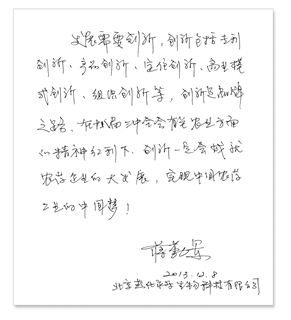 发展需要创新，创新包括专利
创新、产品创新、定位创新、商业模
式创新、组织创新等，创新是品牌
之路。在 三中全会有关农业方面
的精神 下，创新一定会成就
农药企业的大发展，实现中国农药
工业的中国梦！
2013.12.8
北京 科技有限公司